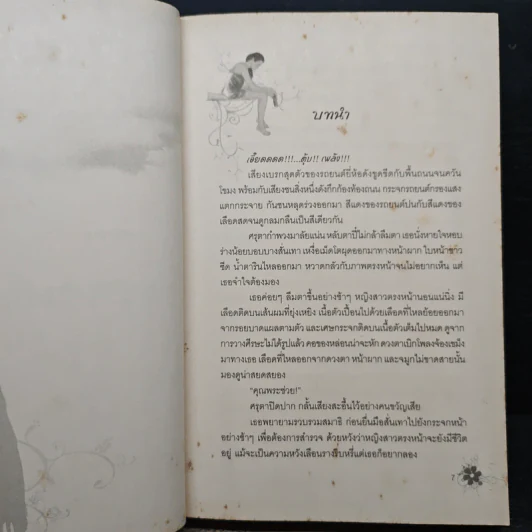 บทนำ
เอี๊ยดดดด!!!...ตุ้บ!! เพล้ง!!!
เสียงเบรกสุดตัวของรถยนต์ยี่ห้อดังขูดขีดกับพื้นถนนจนควัน
โขมง พร้อมกับเสียงชนสิ่งหนึ่งดังกึกก้องท้องถนน กระจกรถยนต์กรองแสง
แตกกระจาย กันชนหลุดร่วงออกมา สีแดงของรถยนต์ปนกับสีแดงของ
เลือดสดจนดูกลมกลืนเป็นสีเดียวกัน
ศรุตากำพวงมาลัยแน่น หลับตาปี๋ไม่กล้าลืมตา เธอนั่งหายใจหอบ
ร่างน้อยบอบบางสั่นเทา เหงื่อเม็ดโตผุดออกมาทางหน้าผาก ใบหน้าขาว
ซีด น้ำตารินไหลออกมา หวาดกลัวกับภาพตรงหน้าจนไม่อยากเห็น แต่
เธอจำใจต้องมอง
เธอค่อยๆ ลืมตาขึ้นอย่างช้าๆ หญิงสาวตรงหน้านอนแน่นิ่ง มี
เลือดติดบนเส้นผมที่ยุ่งเหยิง เนื้อตัวเปื้อนไปด้วยเลือดที่ไหลย้อยออกมา
จากรอยบาดแผลตามตัว และเศษกระจกติดบนเนื้อตัวเต็มไปหมด ดูจาก
การวางศีรษะไม่ได้รูปแล้ว คอของหล่อนน่าจะหัก ดวงตาเบิกโพลงจ้องเขม็ง
มาทางเธอ เลือดที่ไหลออกจากดวงตา หน้าผาก และจมูกไม่ขาดสายนั้น
มองดูน่าสยดสยอง
"คุณพระช่วย!"
ศรุตาปิดปาก กลั้นเสียงสะอื้นไว้อย่างคนขวัญเสีย
เธอพยายามรวบรวมสมาธิ ก่อนยื่นมือสั่นเทาไปยังกระจกหน้า
อย่างช้าๆ เพื่อต้องการสำรวจ ด้วยหวังว่าหญิงสาวตรงหน้าจะยังมีชีวิต
อยู่ แม้จะเป็นความหวังเลือนรางริบหรี่แต่เธอก็อยากลอง
7